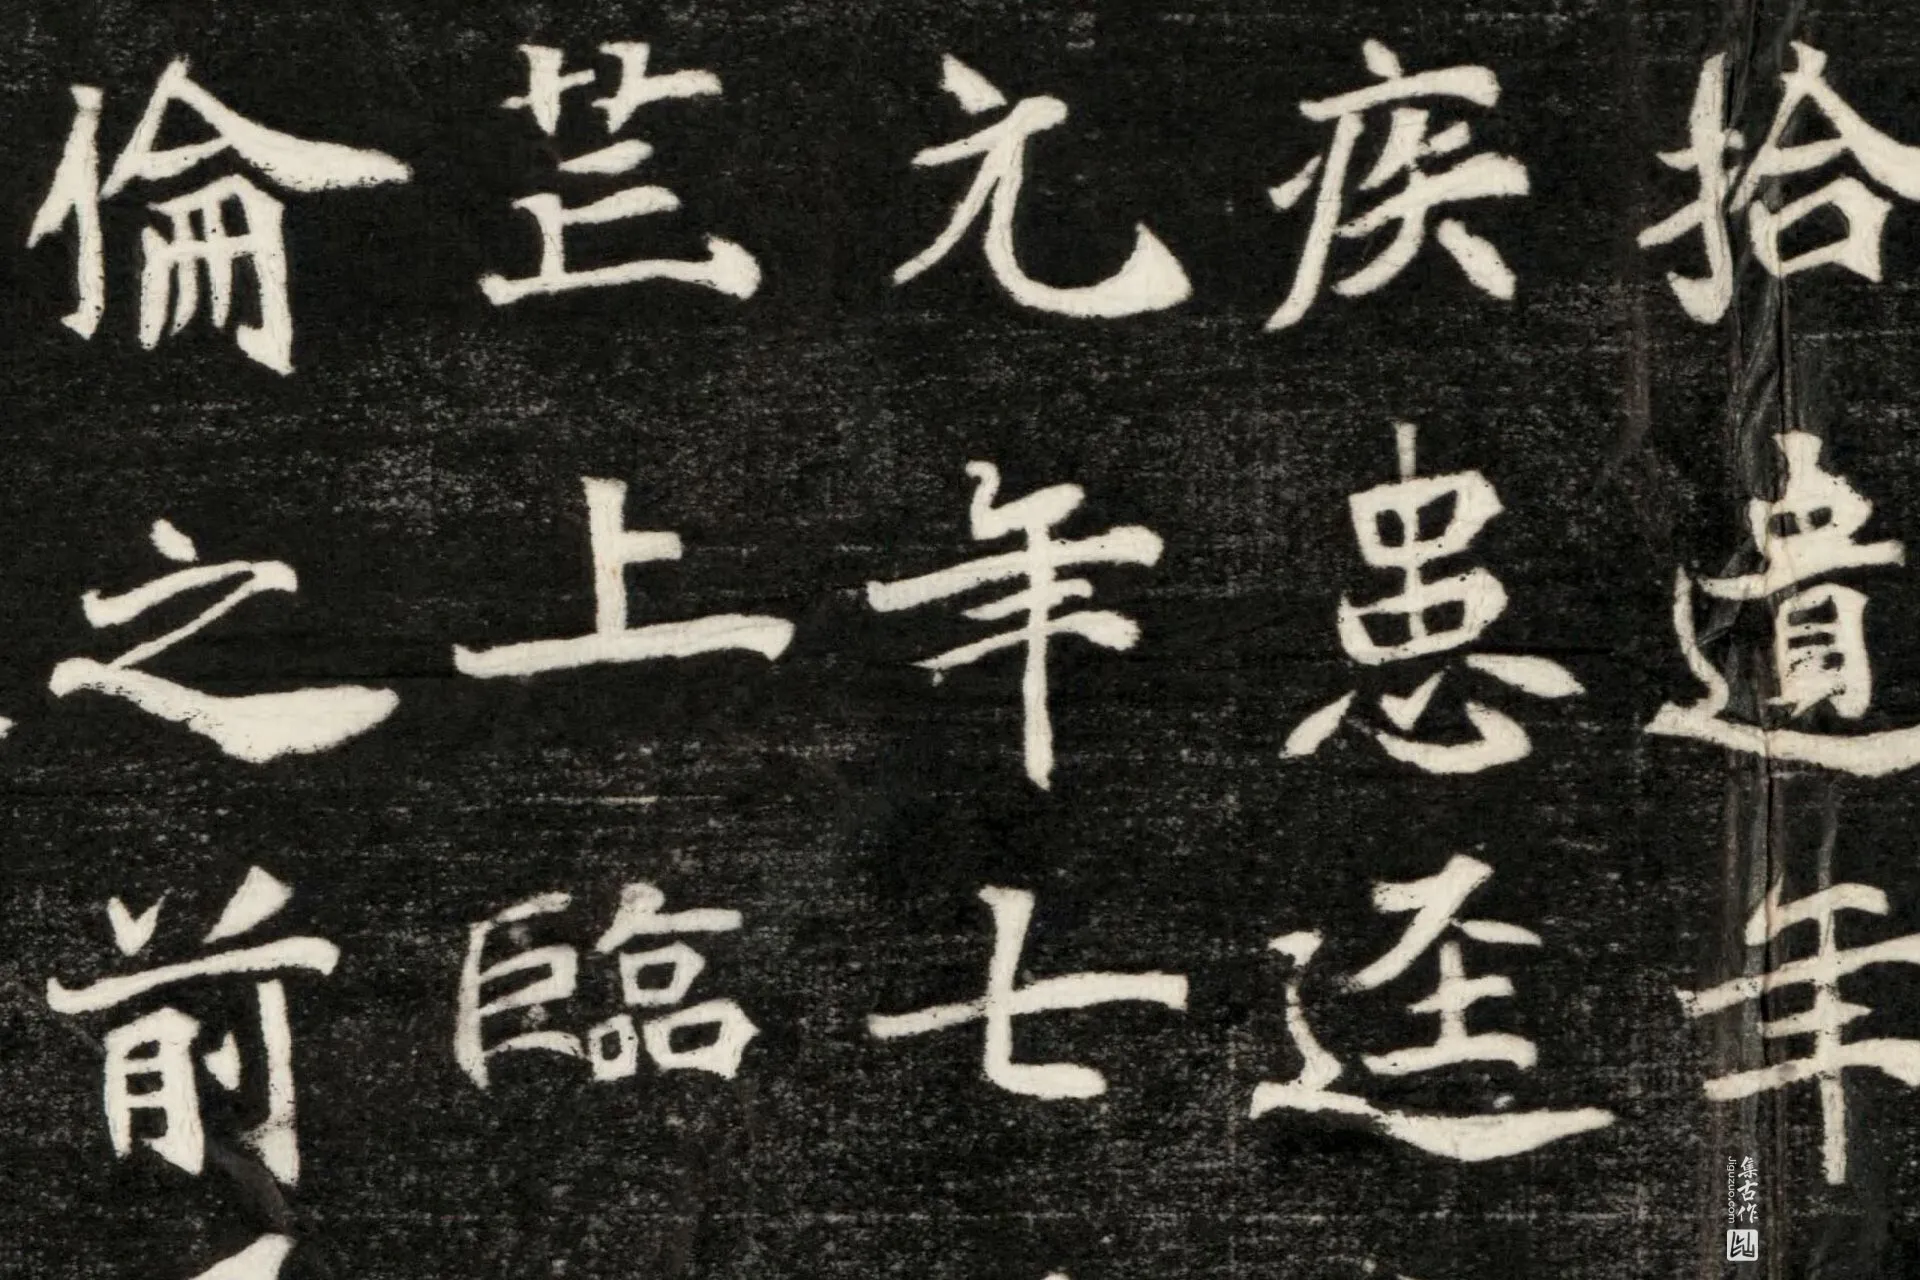 拾遺年
疾患迳
元年七
芒上臨
倫之前
集古作
Jiguzuo.com